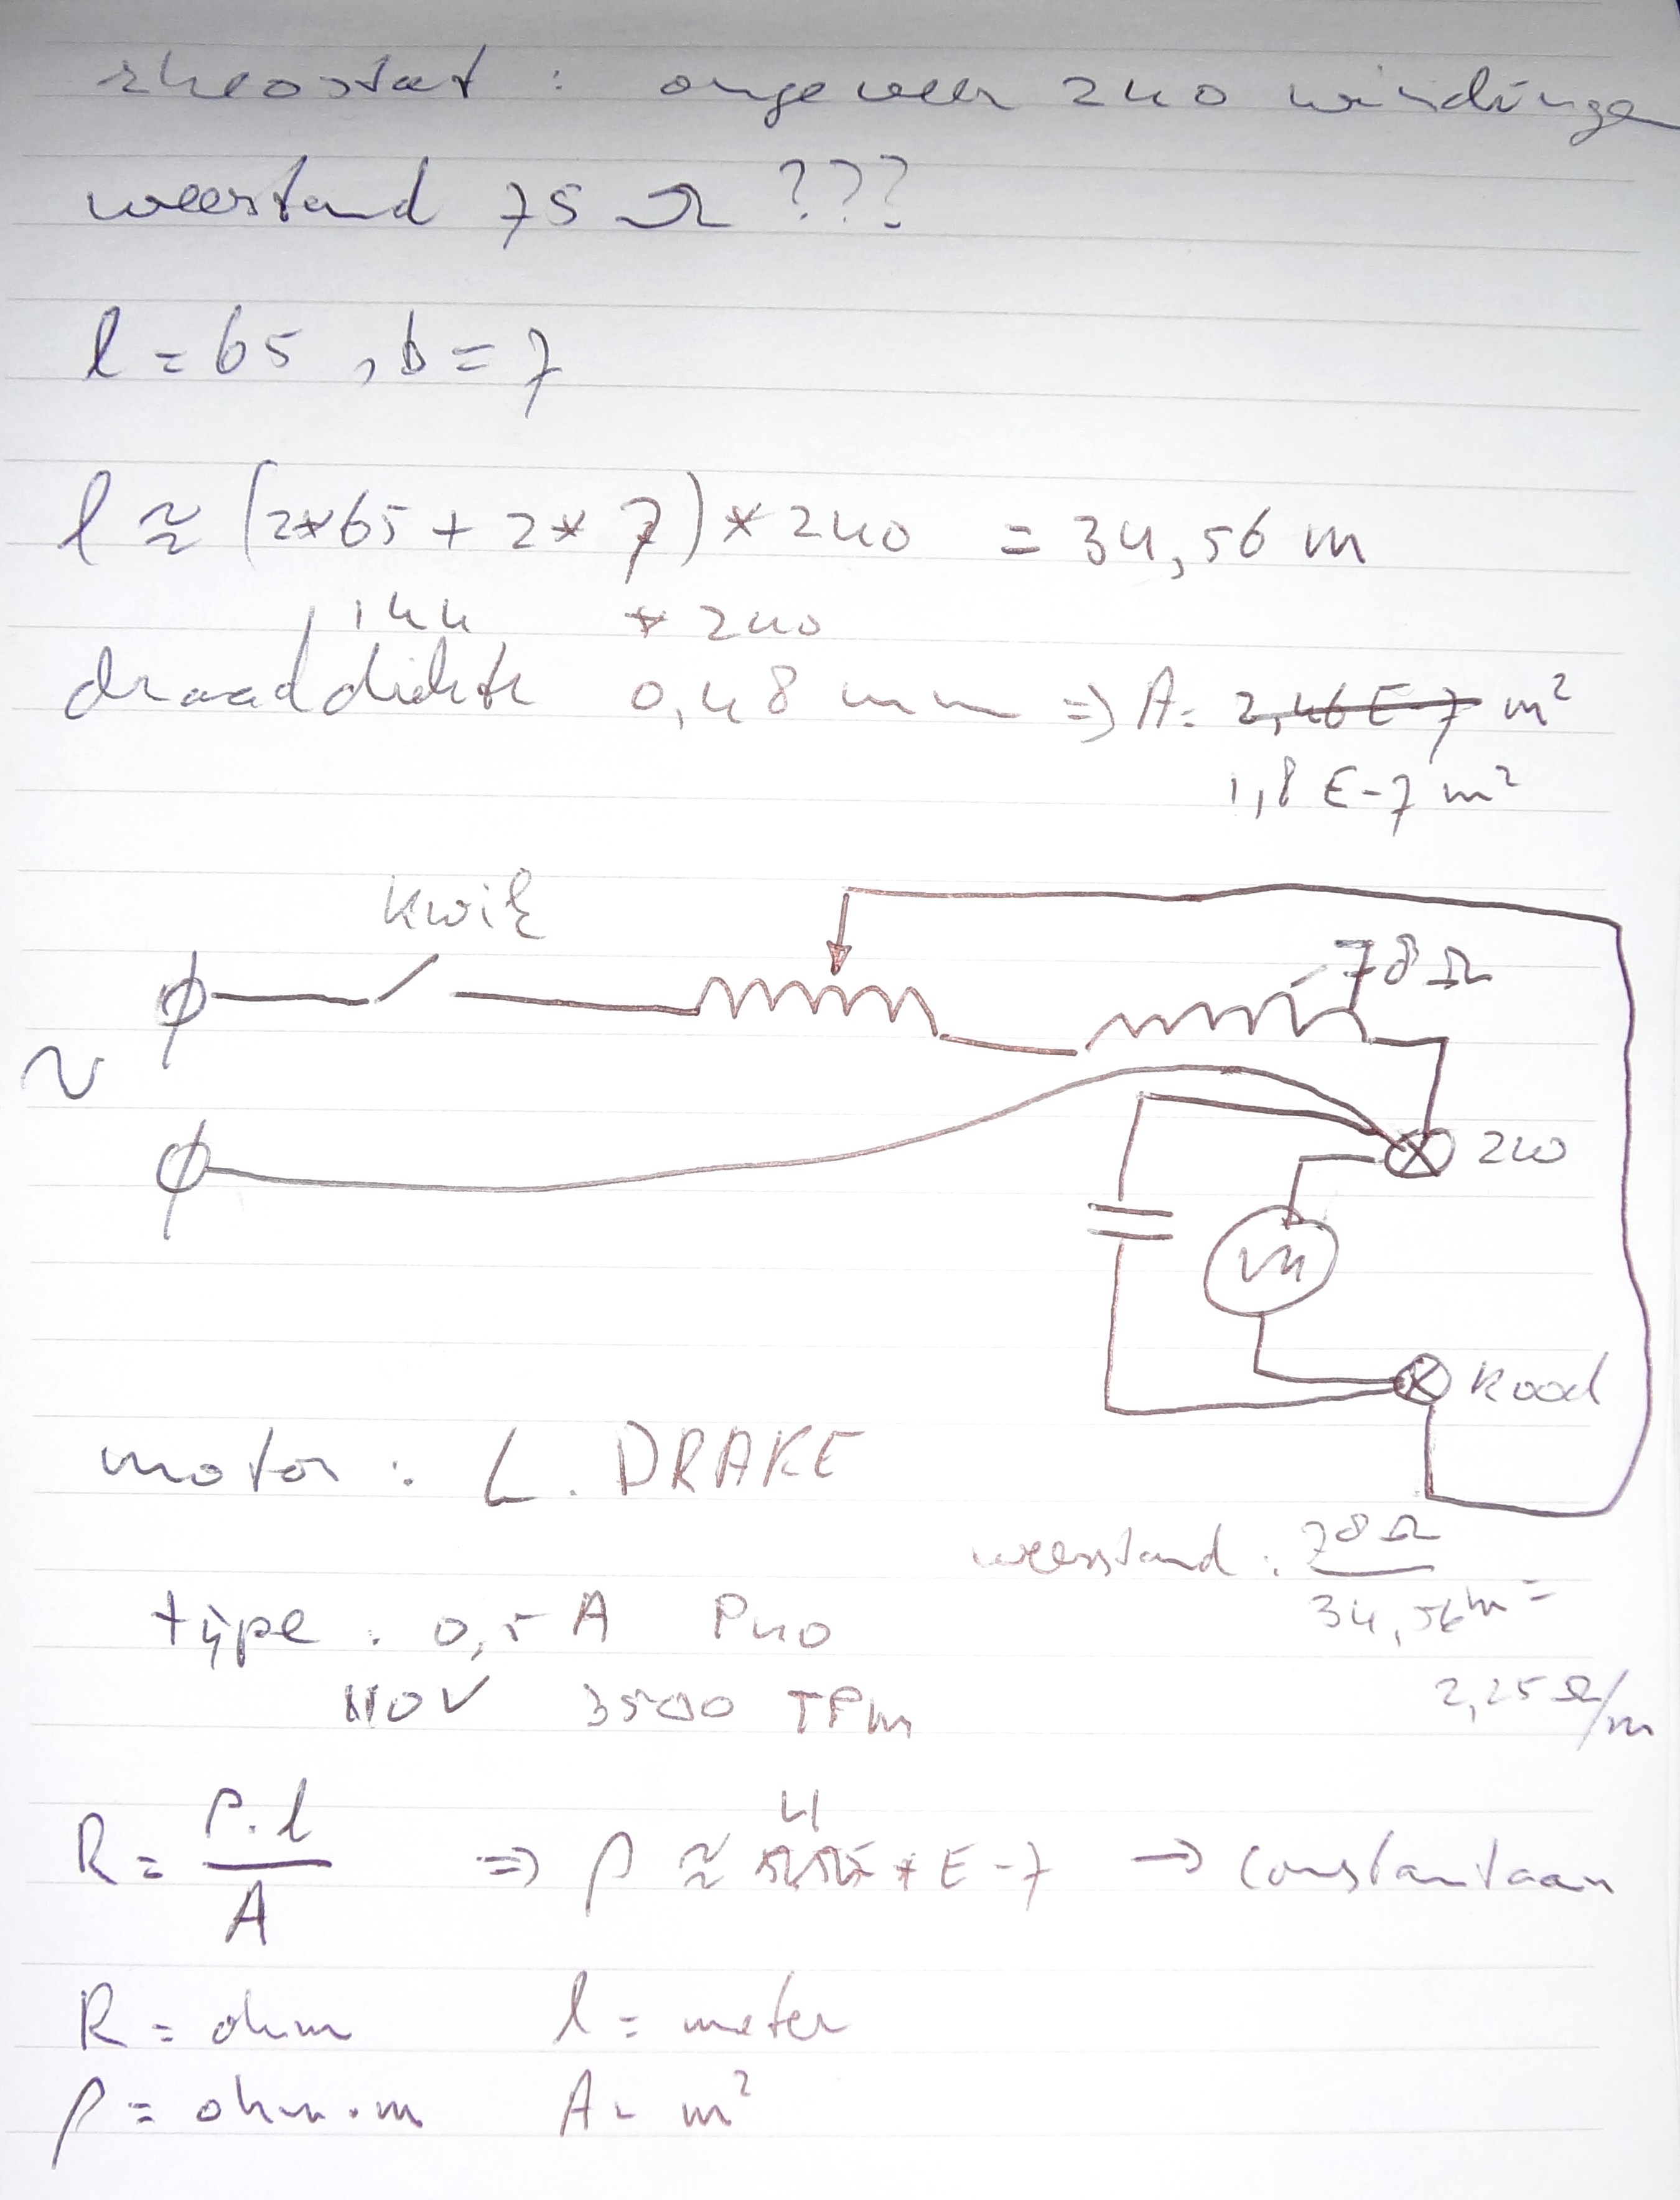 rheostat : ongeveer 240 windingen
weerstand 75 Ω ???
l = 65 , b = 7
l ≈ (2*65 + 2*7) * 240 = 34,56 m
144 * 240
draaddikte 0,48 mm => A = 2,46 E-7 m²
1,8 E-7 m²
kwik
78 Ω
~
zw
M
Rood
motor : L. DRAKE
weerstand : 78 Ω
34,56 m =
type : 0,5 A P40
110V 3500 TPM
2,25 Ω/m
R = ρ.l / A => ρ ≈ 4 * E-7 → constantaan
R = ohm l = meter
ρ = ohm.m A = m²